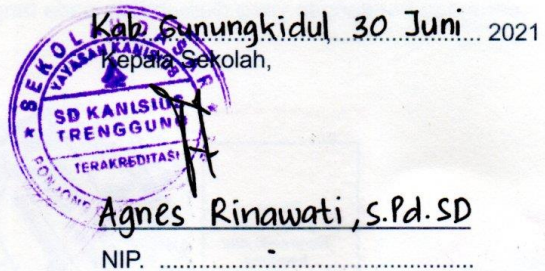 Kab. Gunungkidul, 30 Juni 2021
Kepala Sekolah,
SEKOLAH DASAR
YAYASAN KANISIUS
SD KANISIUS
TRENGGUNO
TERAKREDITASI
PONJONG
Agnes Rinawati, S.Pd.SD
NIP. ..........-..........